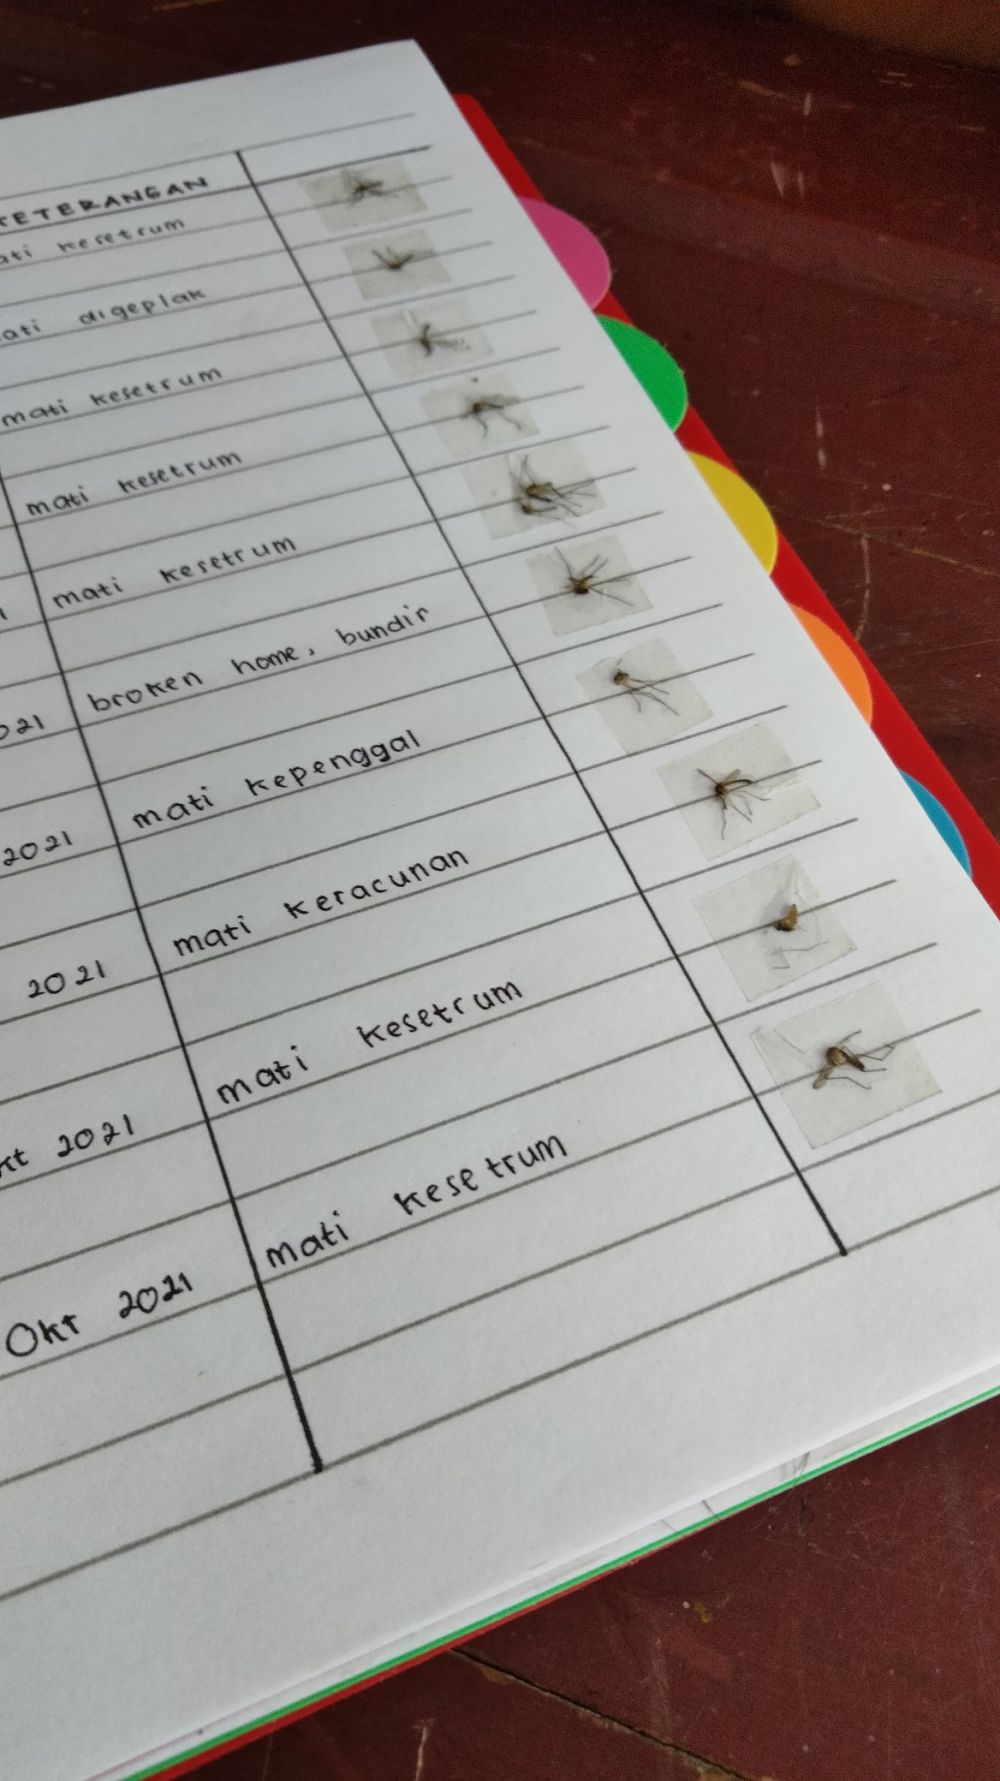 KETERANGAN
mati kesetrum
mati digeplak
mati kesetrum
mati kesetrum
mati kesetrum
2021 broken home, bundir
2021 mati kepenggal
2021 mati keracunan
Okt 2021 mati kesetrum
Okt 2021 mati kesetrum